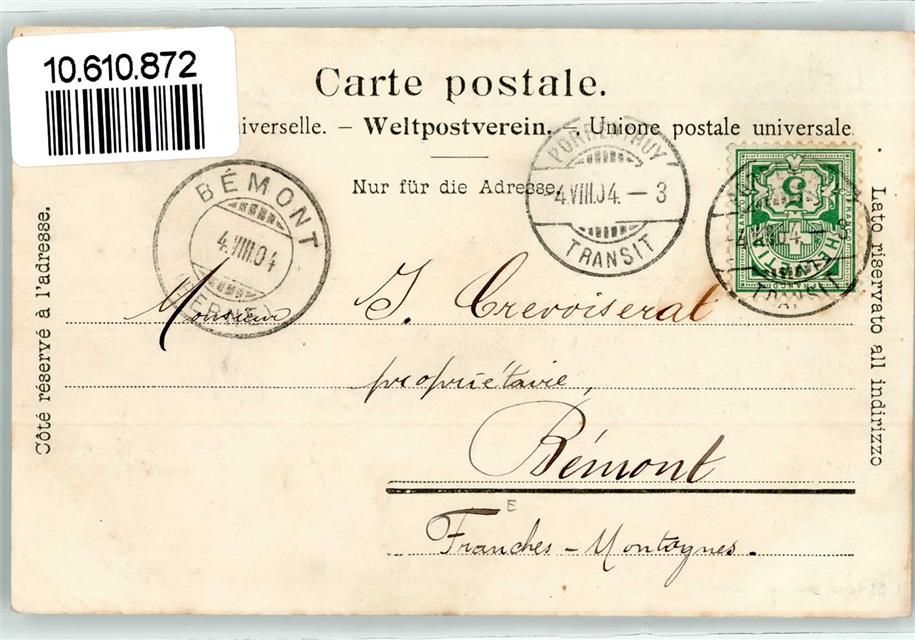 10.610.872
Carte postale.
iverselle. – Weltpostverein. – Unione postale universale
Nur für die Adresse.
Côté réservé à l'adresse.
Lato riservato all indirizzo
BÉMONT
4.VIII.04
(BERNE)
PORRENTRUY
4.VIII.04. – 3
TRANSIT
5
HELVETIA
FRANCO
TRANSIT
Monsieur J. Crevoiserat
propriétaire,
Bémont
E
Franches – Montagnes.